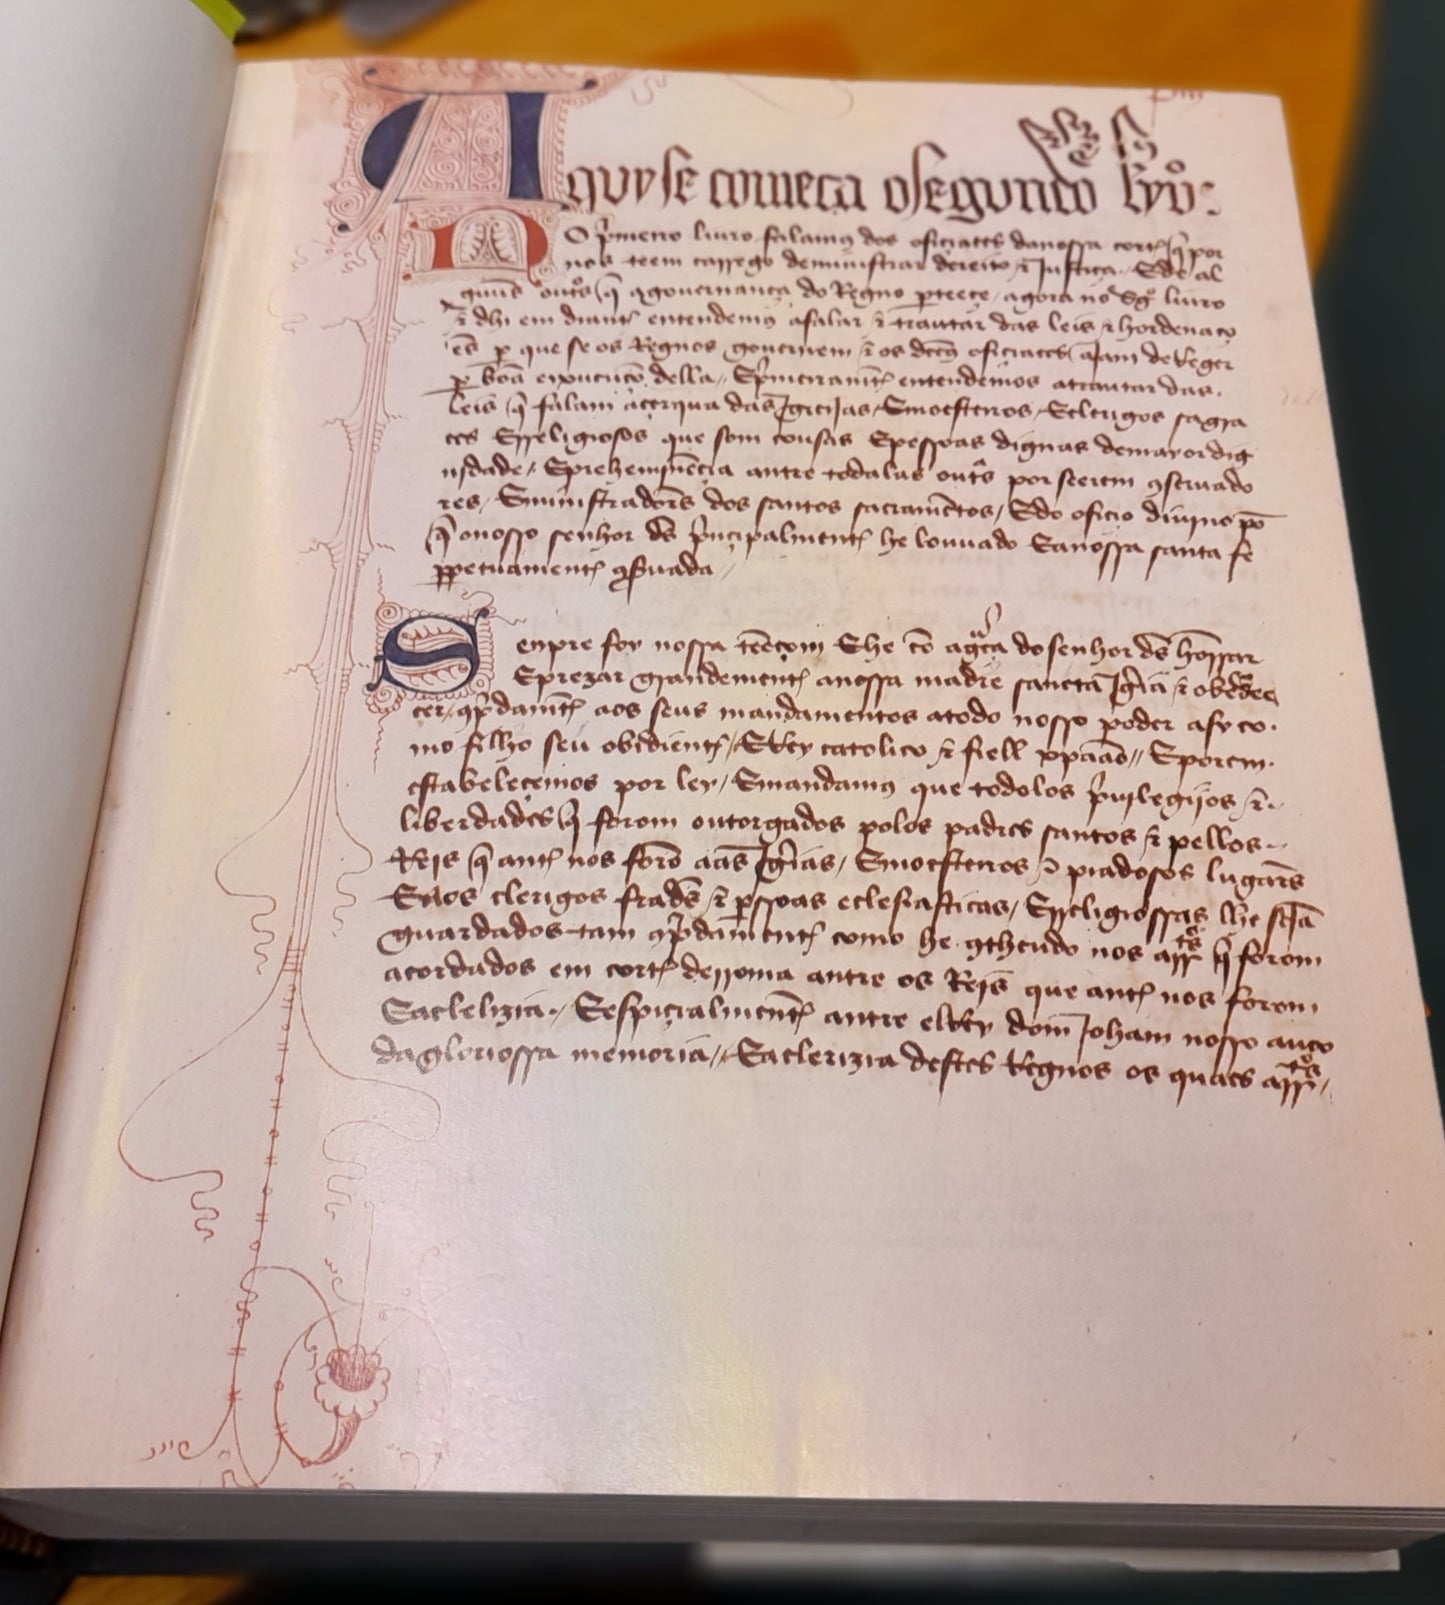 Aquy se comeca o segundo liuro:
No primeiro liuro falamos dos oficiaaes da nossa corte que por
nos teem carrego deministrar dereito e Justiça. E de al
guũs outros que a gouernança do Regno perteeçe / agora no segº liuro
e dhi em diante entendemos a falar e trautar das leis e hordenaço
ẽs per que se os Regnos gouernem e os ditos oficiaaes aJam de Reger
per boõa exucuçõ della // E primeiramẽte entendemos a trautar das
leis que falam açerqua das IgreiJas / E moesteiros / E clerigos sagra
ees E rreligiosos que som cousas E pessoas dignas de mayor dig
nidade / E prehemjnẽçia antre todalas outras por seerem conseruado
res / E ministradorẽs dos santos sacramẽtos / E do oficio diuino per
que o nosso senhor ds principalmente he louuado E a nossa santa fe
perpetuamente conseruada //
Senpre foy nossa tẽeçom E he cõ a graça do senhor ds honrrar
E prezar grandemente a nossa madre sancta Igreia / e obedee
çer / conpridamẽte aos seus mandamentos a todo nosso poder asy co.
mo filho seu obidiente / E Rey catolico e fiell xpaão // E porem.
estabeleçemos por ley / E mandamos que todolos priuilegijos e.
liberdades que forom outorgados polos padres santos e pellos
Reis que ante nos forõ aas Igreias / E moesteiros e piadosos lugarẽs
E aos clerigos frades / e pessoas eclesiasticas / E rreligiossas lhe seJã
guardados tam conpridamente como he contheudo nos artos que forom
acordados em corte de rroma antre os Reis que ante nos forom
E a clelizia. E espiçialmente antre el Rey dom Joham nosso auoo
da gloriossa memoria // E a clerizia destes Regnos os quaes artos /